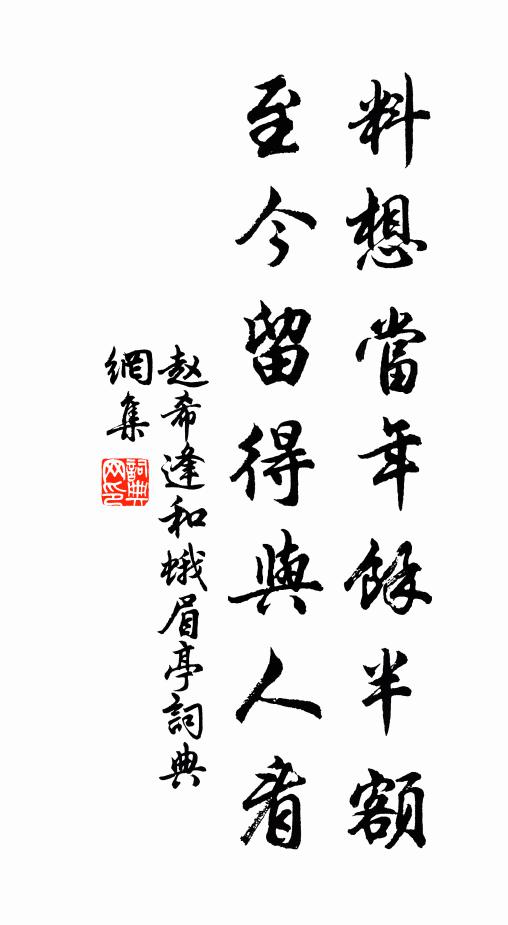 料想當年餘半額
至今留得與人看
赵希逢和蛾眉亭詞典
網集
詞典
网印